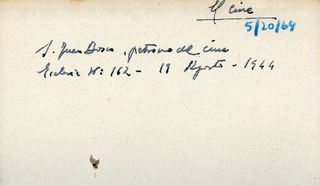 El cine
5/20/64
S. Juan Bosco, patrono del cine
Ecclesia Nº 162 - 19 Agosto - 1944